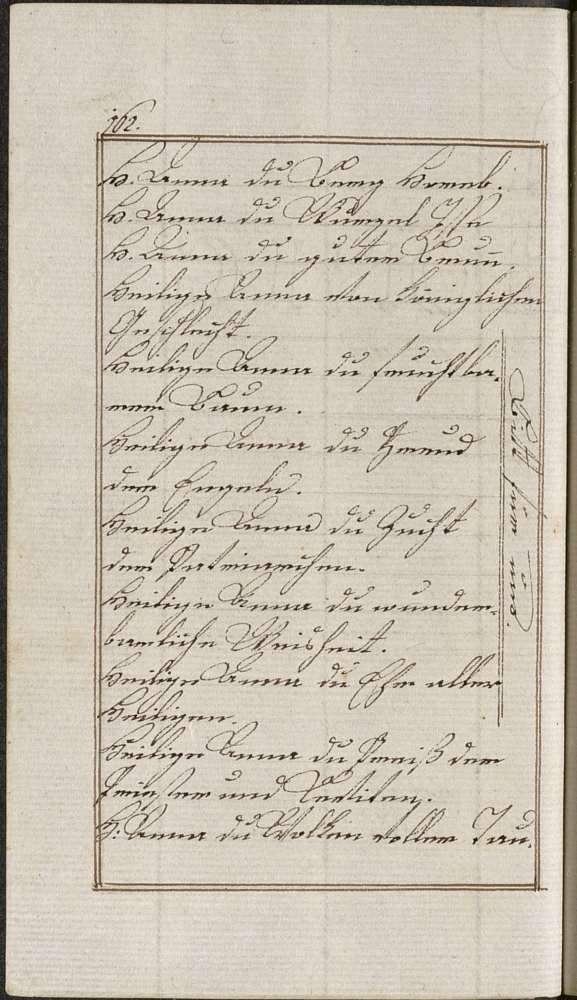 162.
H. Anna du Berg Horeb.
H. Anna du Wurzel Jesse
H. Anna du guter Baum,
Heilige Anna von königlichem
Geschlecht.
Heilige Anna du fruchtba-
rer Baum.
Heilige Anna du Freud
der Engeln.
Heilige Anna du Zucht
der Patriarchen.
Heilige Anna du wunder-
barliche Weisheit.
Heilige Anna du Ehr aller
Heiligen.
Heilige Anna du Preiß der
Priester und Leviten.
H: Anna du Wolken voller Tau.
Bitt für uns.